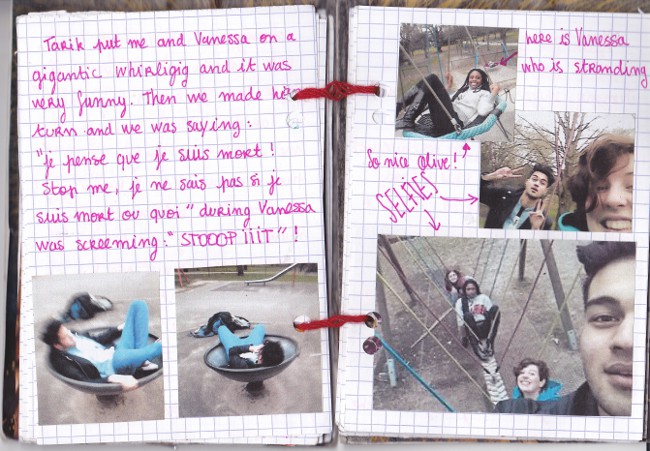 Tarik put me and Vanessa on a
gigantic whirligig and it was
very funny. Then we made him
turn and we was saying :
"je pense que je suis mort !
Stop me, je ne sais pas si je
suis mort ou quoi" during Vanessa
was screeming : "STOOOP iiiT" !
here is Vanessa
who is stranding
So nice Olive !
SELFIES